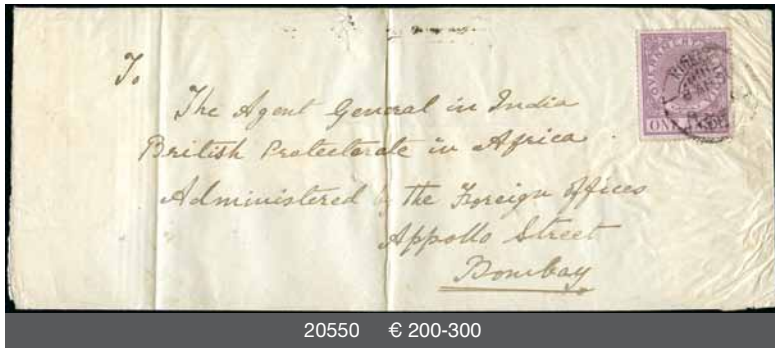 To
The Agent General in India
British Protectorate in Africa
Administered by the Foreign Offices
Appollo Street
Bombay
GOVERNMENT
ONE
20550 € 200-300